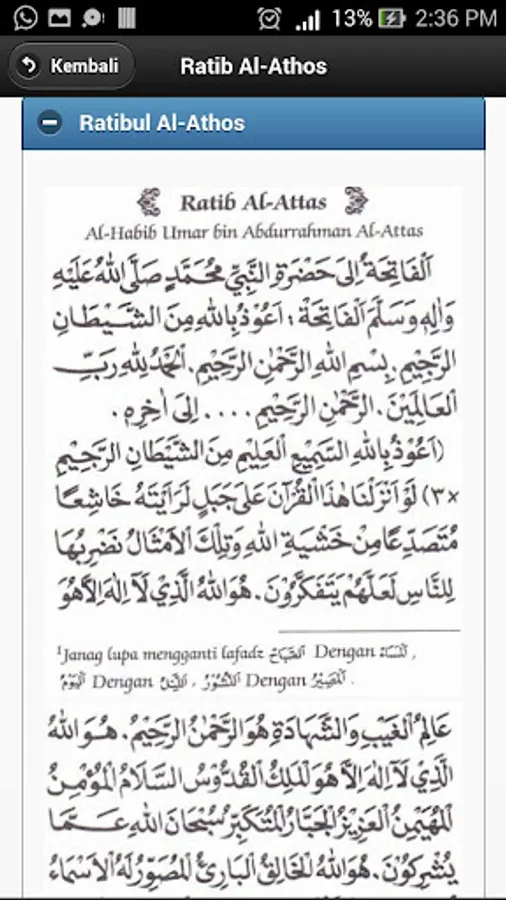 13% 2:36 PM
Kembali
Ratib Al-Athos
Ratibul Al-Athos
Ratib Al-Attas
Al-Habib Umar bin Abdurrahman Al-Attas
اَلْفَاتِحَةُ اِلَى حَضْرَةِ النَّبِيِّ مُحَمَّدٍ صَلَّى اللهُ عَلَيْهِ
وَاٰلِهِ وَسَلَّمَ اَلْفَاتِحَةْ : اَعُوْذُ بِاللهِ مِنَ الشَّيْطَانِ
الرَّجِيْمِ. بِسْمِ اللهِ الرَّحْمٰنِ الرَّحِيْمِ. اَلْحَمْدُ لِلهِ رَبِّ
الْعَالَمِيْنَ. الرَّحْمٰنِ الرَّحِيْمِ .... اِلَى اٰخِرِهِ.
(اَعُوْذُ بِاللهِ السَّمِيْعِ الْعَلِيْمِ مِنَ الشَّيْطَانِ الرَّجِيْمِ
×٣) لَوْ اَنْزَلْنَا هٰذَا الْقُرْآنَ عَلَى جَبَلٍ لَرَاَيْتَهُ خَاشِعًا
مُتَصَدِّعًا مِنْ خَشْيَةِ اللهِ وَتِلْكَ الْاَمْثَالُ نَضْرِبُهَا
لِلنَّاسِ لَعَلَّهُمْ يَتَفَكَّرُوْنَ. هُوَ اللهُ الَّذِيْ لَا اِلٰهَ اِلَّا هُوَ
¹Janag lupa mengganti lafadz اَلصَّبَاحُ Dengan اَلْمَسَاءُ ,
اَلْيَوْمُ Dengan اَللَّيْلُ , اَلنُّشُوْرُ Dengan اَلْمَصِيْرُ .
عَالِمُ الْغَيْبِ وَالشَّهَادَةِ هُوَ الرَّحْمٰنُ الرَّحِيْمُ. هُوَ اللهُ
الَّذِيْ لَا اِلٰهَ اِلَّا هُوَ الْمَلِكُ الْقُدُّوْسُ السَّلَامُ الْمُؤْمِنُ
الْمُهَيْمِنُ الْعَزِيْزُ الْجَبَّارُ الْمُتَكَبِّرُ سُبْحَانَ اللهِ عَمَّا
يُشْرِكُوْنَ. هُوَ اللهُ الْخَالِقُ الْبَارِئُ الْمُصَوِّرُ لَهُ الْاَسْمَاءُ